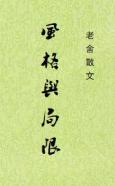 老舍散文
風格與局限